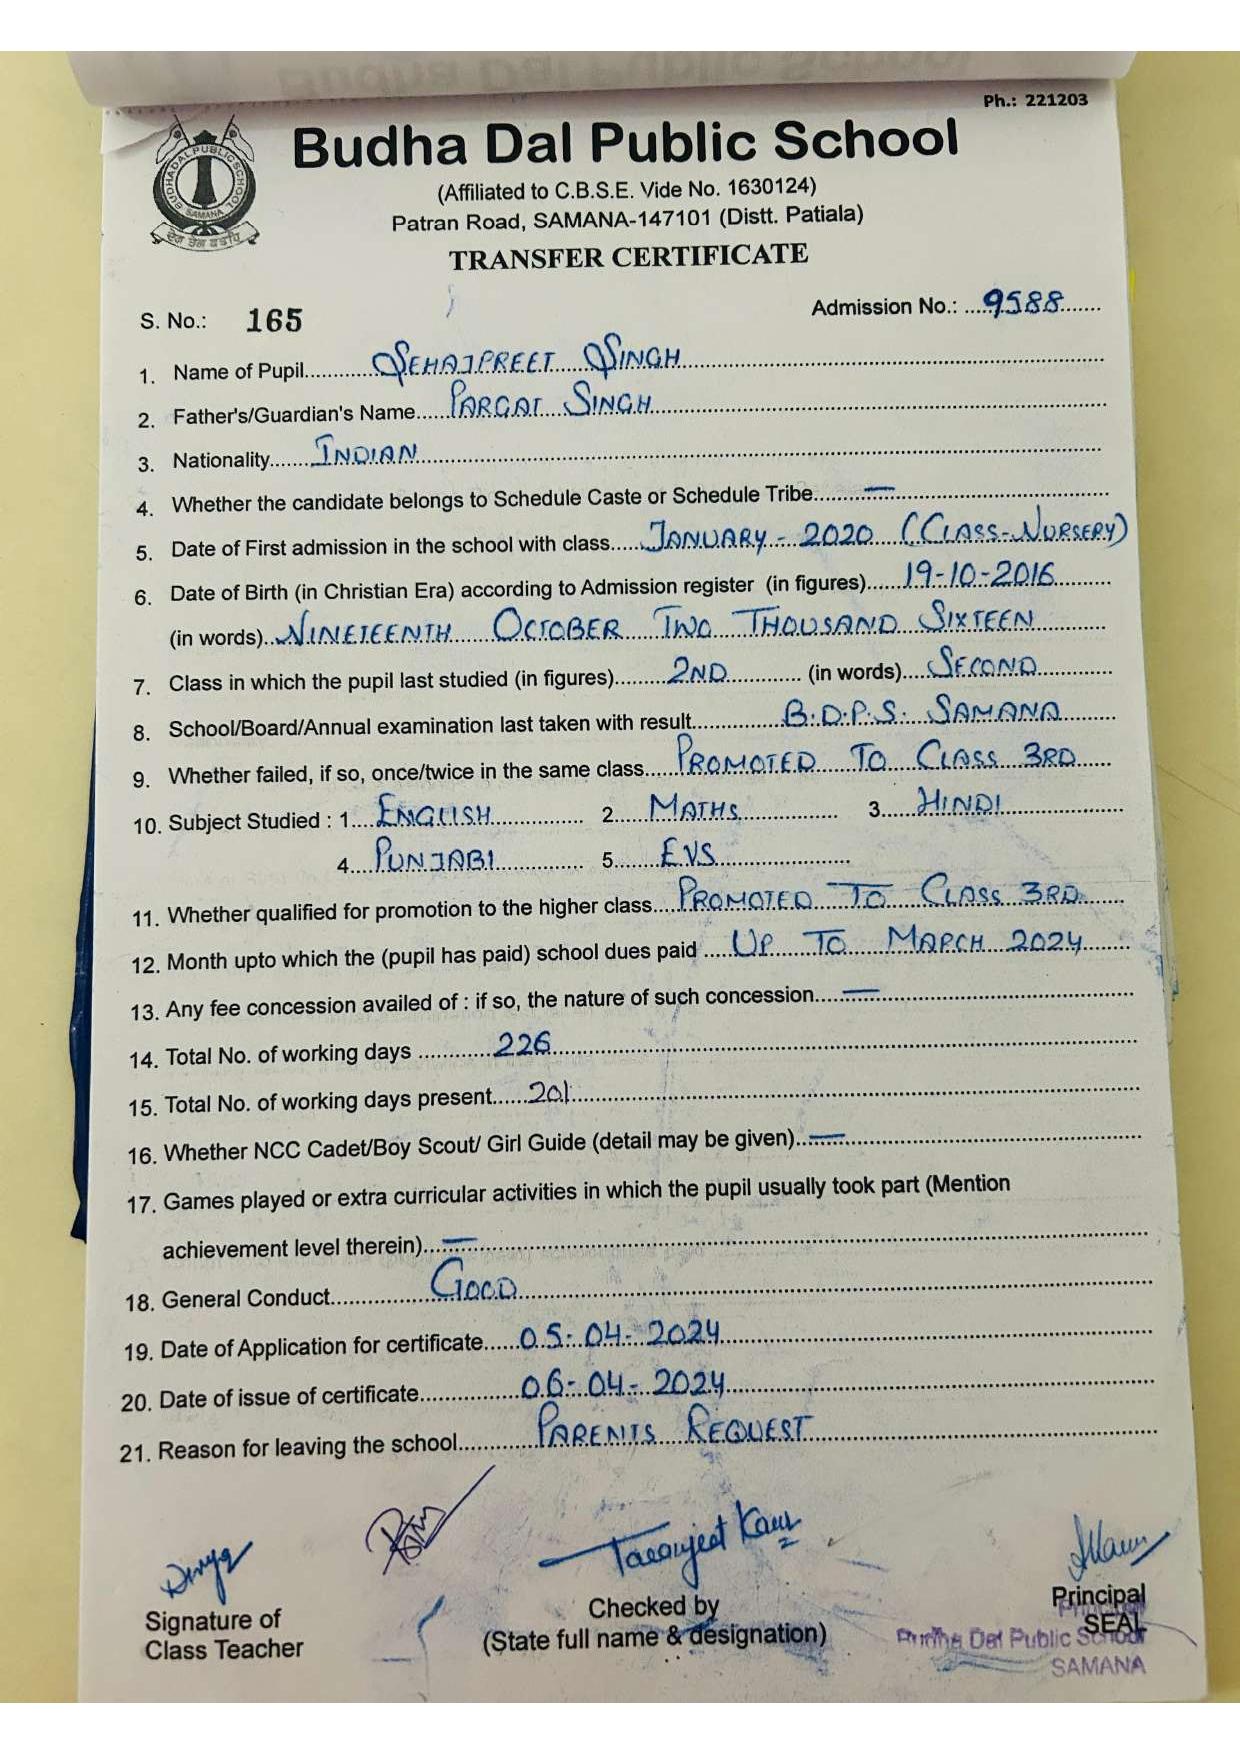 Ph.: 221203
BUDHA DAL PUBLIC SCHOOL
SAMANA
Budha Dal Public School
(Affiliated to C.B.S.E. Vide No. 1630124)
Patran Road, SAMANA-147101 (Distt. Patiala)
TRANSFER CERTIFICATE
S. No.: 165
Admission No.: 9588
1. Name of Pupil SEHAJPREET SINGH
2. Father's/Guardian's Name PARGAT SINGH
3. Nationality INDIAN
4. Whether the candidate belongs to Schedule Caste or Schedule Tribe —
5. Date of First admission in the school with class JANUARY - 2020 (CLASS-NURSERY)
6. Date of Birth (in Christian Era) according to Admission register (in figures) 19-10-2016
(in words) NINETEENTH OCTOBER TWO THOUSAND SIXTEEN
7. Class in which the pupil last studied (in figures) 2ND (in words) SECOND
8. School/Board/Annual examination last taken with result B.D.P.S. SAMANA
9. Whether failed, if so, once/twice in the same class PROMOTED TO CLASS 3RD
10. Subject Studied : 1 ENGLISH 2 MATHS 3 HINDI
4 PUNJABI 5 EVS
11. Whether qualified for promotion to the higher class PROMOTED TO CLASS 3RD
12. Month upto which the (pupil has paid) school dues paid UP TO MARCH 2024
13. Any fee concession availed of : if so, the nature of such concession —
14. Total No. of working days 226
15. Total No. of working days present 201
16. Whether NCC Cadet/Boy Scout/ Girl Guide (detail may be given) —
17. Games played or extra curricular activities in which the pupil usually took part (Mention
achievement level therein) —
18. General Conduct GOOD
19. Date of Application for certificate 05-04-2024
20. Date of issue of certificate 06-04-2024
21. Reason for leaving the school PARENTS REQUEST
Divya
Taranjeet Kaur
Signature of
Class Teacher
Checked by
(State full name & designation)
Principal
SEAL
Principal
Budha Dal Public School
SAMANA